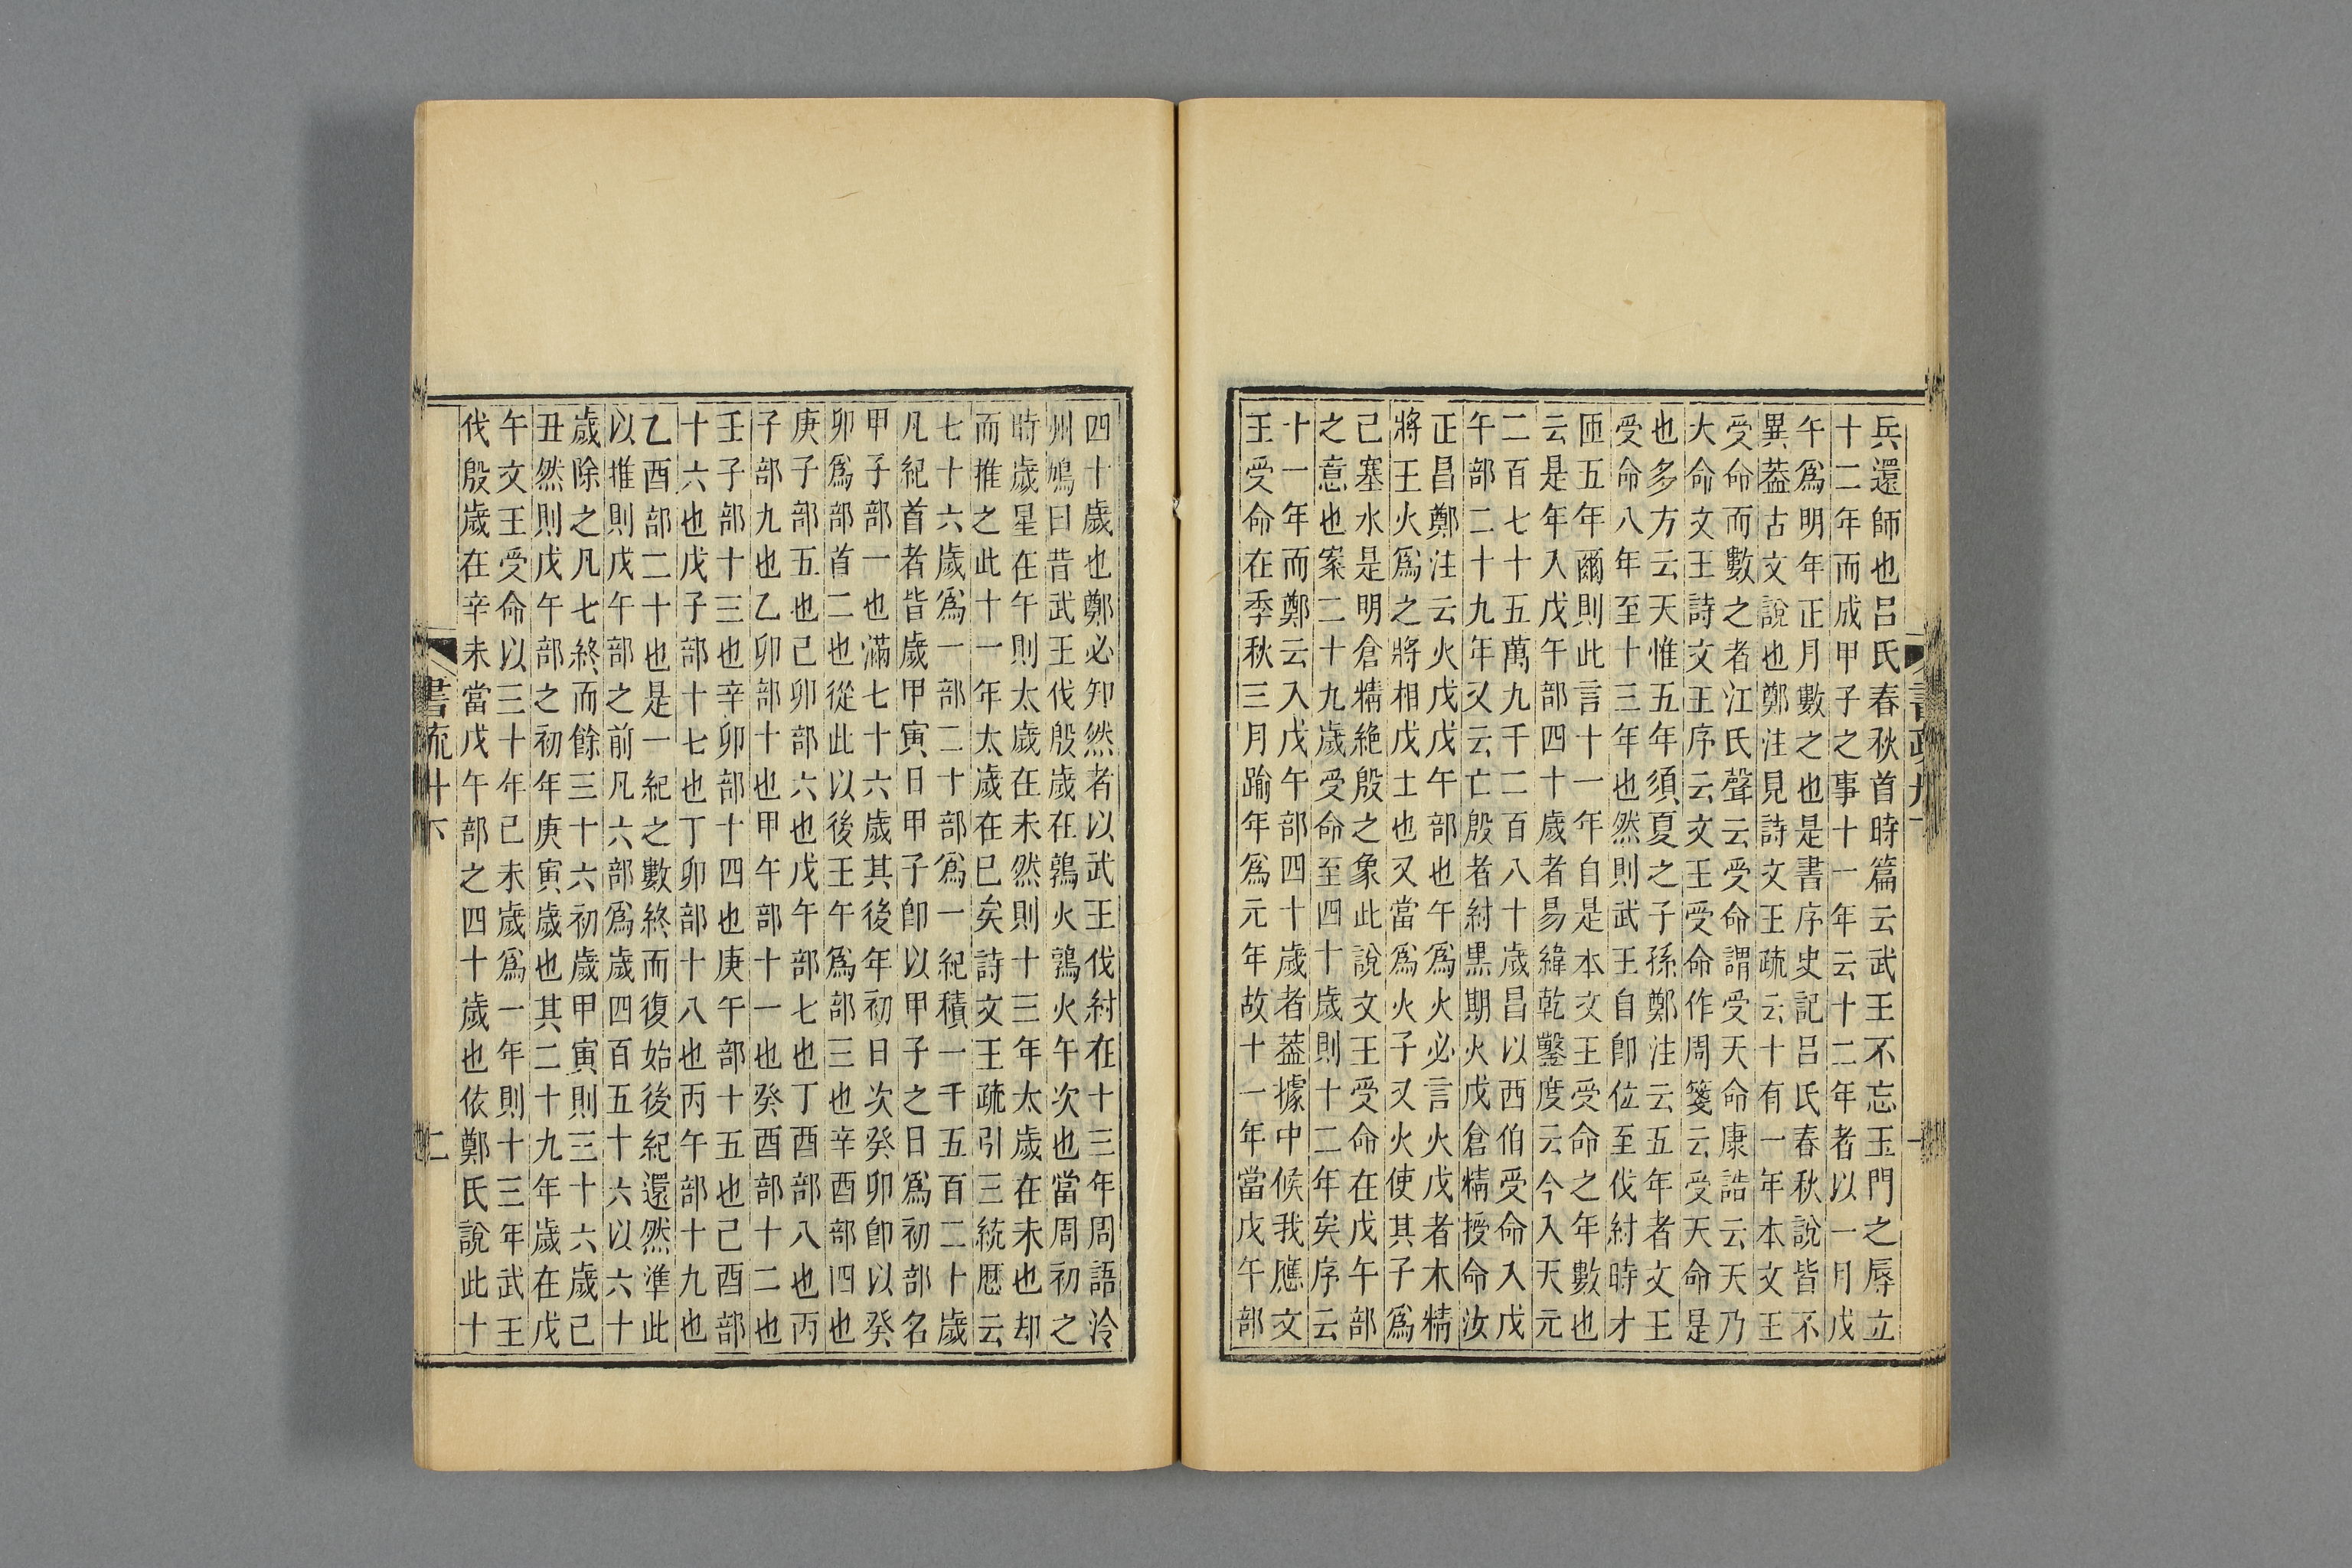 兵還師也呂氏春秋首時篇云武王不忘玉門之辱立
十二年而成甲子之事十一年云十二年者以一月戊
午爲明年正月數之也是書序史記呂氏春秋說皆不
異葢古文說也鄭注見詩文王疏云十有一年本文王
受命而數之者江氏聲云受命謂受天命康誥云天乃
大命文王詩文王序云文王受命作周箋云受天命是
也多方云天惟五年須夏之子孫鄭注云五年者文王
受命八年至十三年也然則武王自卽位至伐紂時才
匝五年爾則此言十一年自是本文王受命之年數也
云是年入戊午部四十歲者易緯乾鑿度云今入天元
二百七十五萬九千二百八十歲昌以西伯受命入戊
午部二十九年又云亡殷者紂黑期火戊倉精授命汝
正昌鄭注云火戊戊午部也午爲火必言火戊者木精
將王火爲之將相戊土也又當爲火子又火使其子爲
己塞水是明倉精絶殷之象此說文王受命在戊午部
之意也案二十九歲受命至四十歲則十二年矣序云
十一年而鄭云入戊午部四十歲者葢據中候我應文
王受命在季秋三月踰年爲元年故十一年當戊午部
四十歲也鄭必知然者以武王伐紂在十三年周語泠
州鳩曰昔武王伐殷歲在鶉火鶉火午次也當周初之
時歲星在午則太歲在未然則十三年太歲在未也却
而推之此十一年太歲在巳矣詩文王疏引三統厯云
七十六歲爲一部二十部爲一紀積一千五百二十歲
凡紀首者皆歲甲寅日甲子卽以甲子之日爲初部名
甲子部一也滿七十六歲其後年初日次癸卯卽以癸
卯爲部首二也從此以後壬午爲部三也辛酉部四也
庚子部五也己卯部六也戊午部七也丁酉部八也丙
子部九也乙卯部十也甲午部十一也癸酉部十二也
壬子部十三也辛卯部十四也庚午部十五也己酉部
十六也戊子部十七也丁卯部十八也丙午部十九也
乙酉部二十也是一紀之數終而復始後紀還然準此
以推則戊午部之前凡六部爲歲四百五十六以六十
歲除之凡七終而餘三十六初歲甲寅則三十六歲己
丑然則戊午部之初年庚寅歲也其二十九年歲在戊
午文王受命以三十年己未歲爲一年則十三年武王
伐殷歲在辛未當戊午部之四十歲也依鄭氏說此十
書疏十下
二